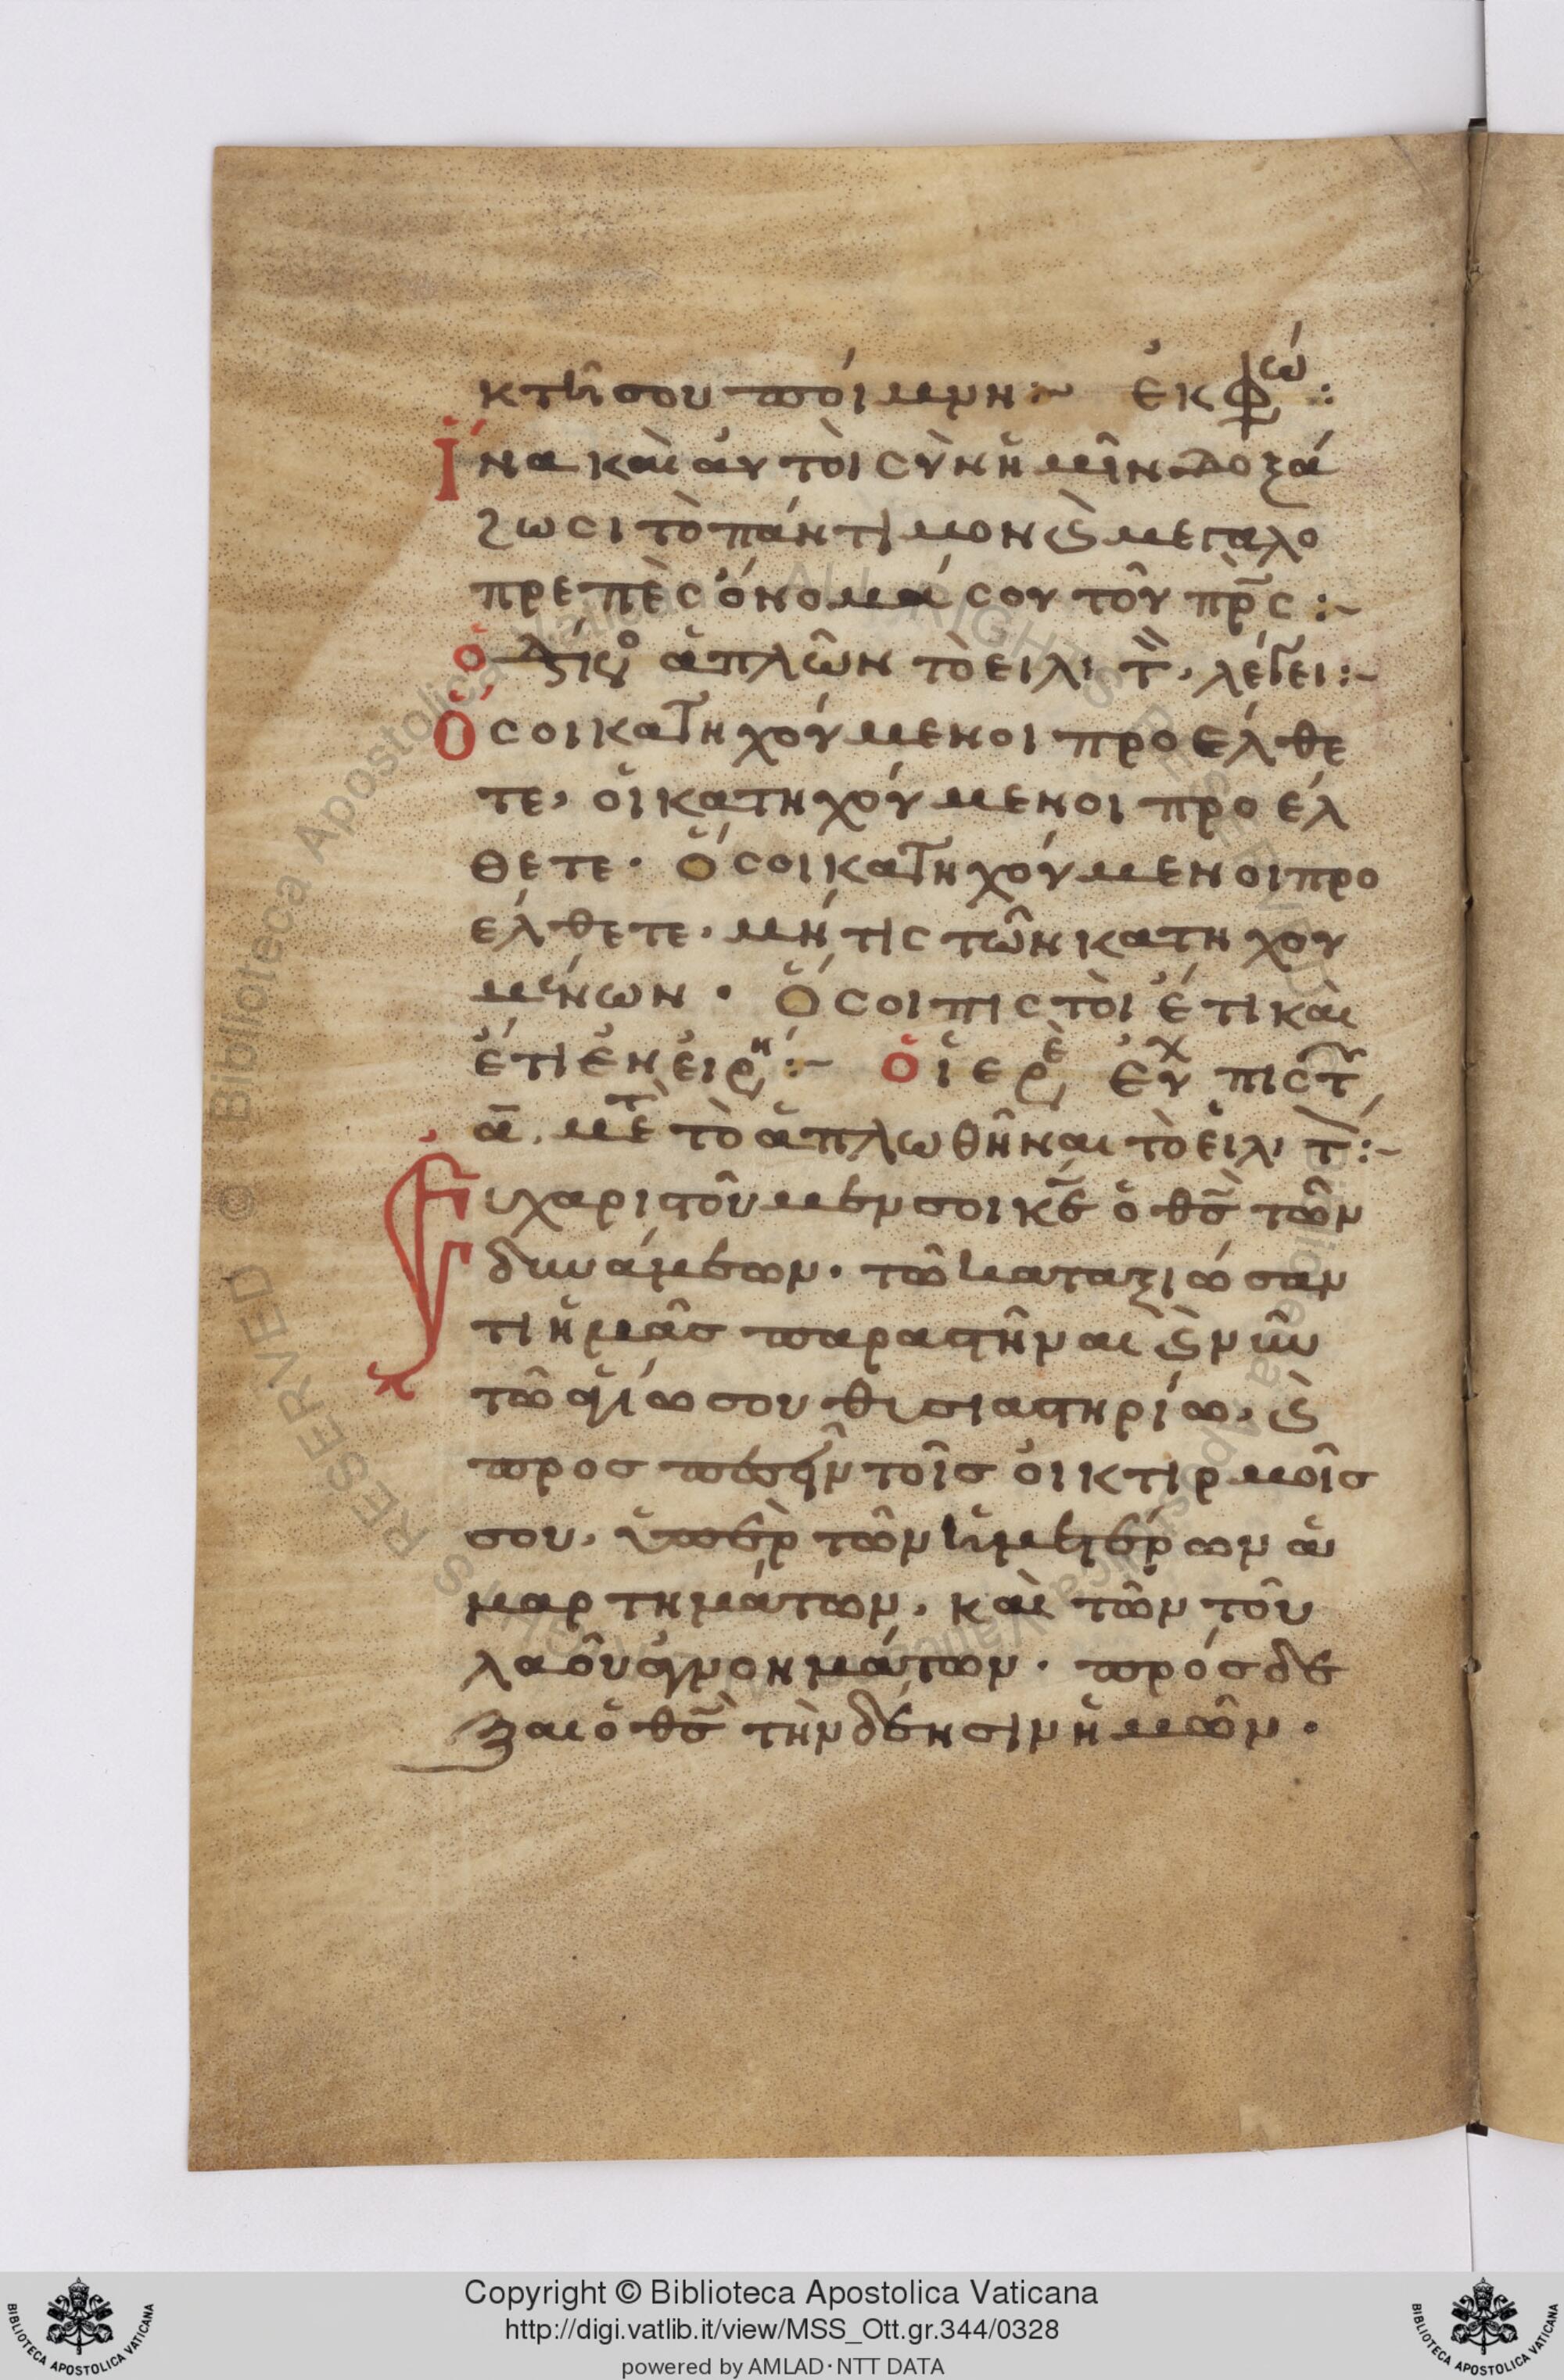 κτῆ σου ποίμνη :~ ἐκφώ :
Ἵνα καὶ ἀυτὸι σὺν ἡμῖν δοξά
ζωσι τὸ πάντιμον ϗ μεγαλο
πρεπὲς ὄνομά σου τοῦ πρ̅ς :~
ἁπλῶν τὸ ειλιτ̅, λέγει :~
Ὅσοι κατηχούμενοι προέλθε
τε, ὁι κατηχούμενοι προέλ
θετε · Ὅσοι κατηχούμενοι προ
έλθετε · μή τις τῶν κατηχου
μένων · Ὅσοι πιστὸι ἔτι καὶ
ἔτι ἐν ἐιρη :~ ὁ ἱερὲ ἐυχ πιστ
α̅. μετ τὸ ἁπλωθῆναι τὸ ἐιλιτ̅ :~
Ευχαριστοῦμεν σοι κε̅ ὁ θς̅ τῶν
δυνάμεων · τῶ καταξιώσαν
τι ἡμᾶς παραστῆναι ϗ νῦν
τῶ ἁγίω σου θυσιαστηρίω, ϗ
προσπεσεῖν τοῖς ὀικτιρμοῖς
σου, ὑπὲρ τῶν ἡμετέρων ἁ
μαρτημάτων, καὶ τῶν τοῦ
λαοῦ ἀγνοημάτων · πρόσδε
ξαι ὁ θς̅ τὴν δέησιν ἡμῶν ·
Copyright © Biblioteca Apostolica Vaticana
http://digi.vatlib.it/view/MSS_Ott.gr.344/0328
powered by AMLAD·NTT DATA
BIBLIOTECA APOSTOLICA VATICANA
BIBLIOTECA APOSTOLICA VATICANA